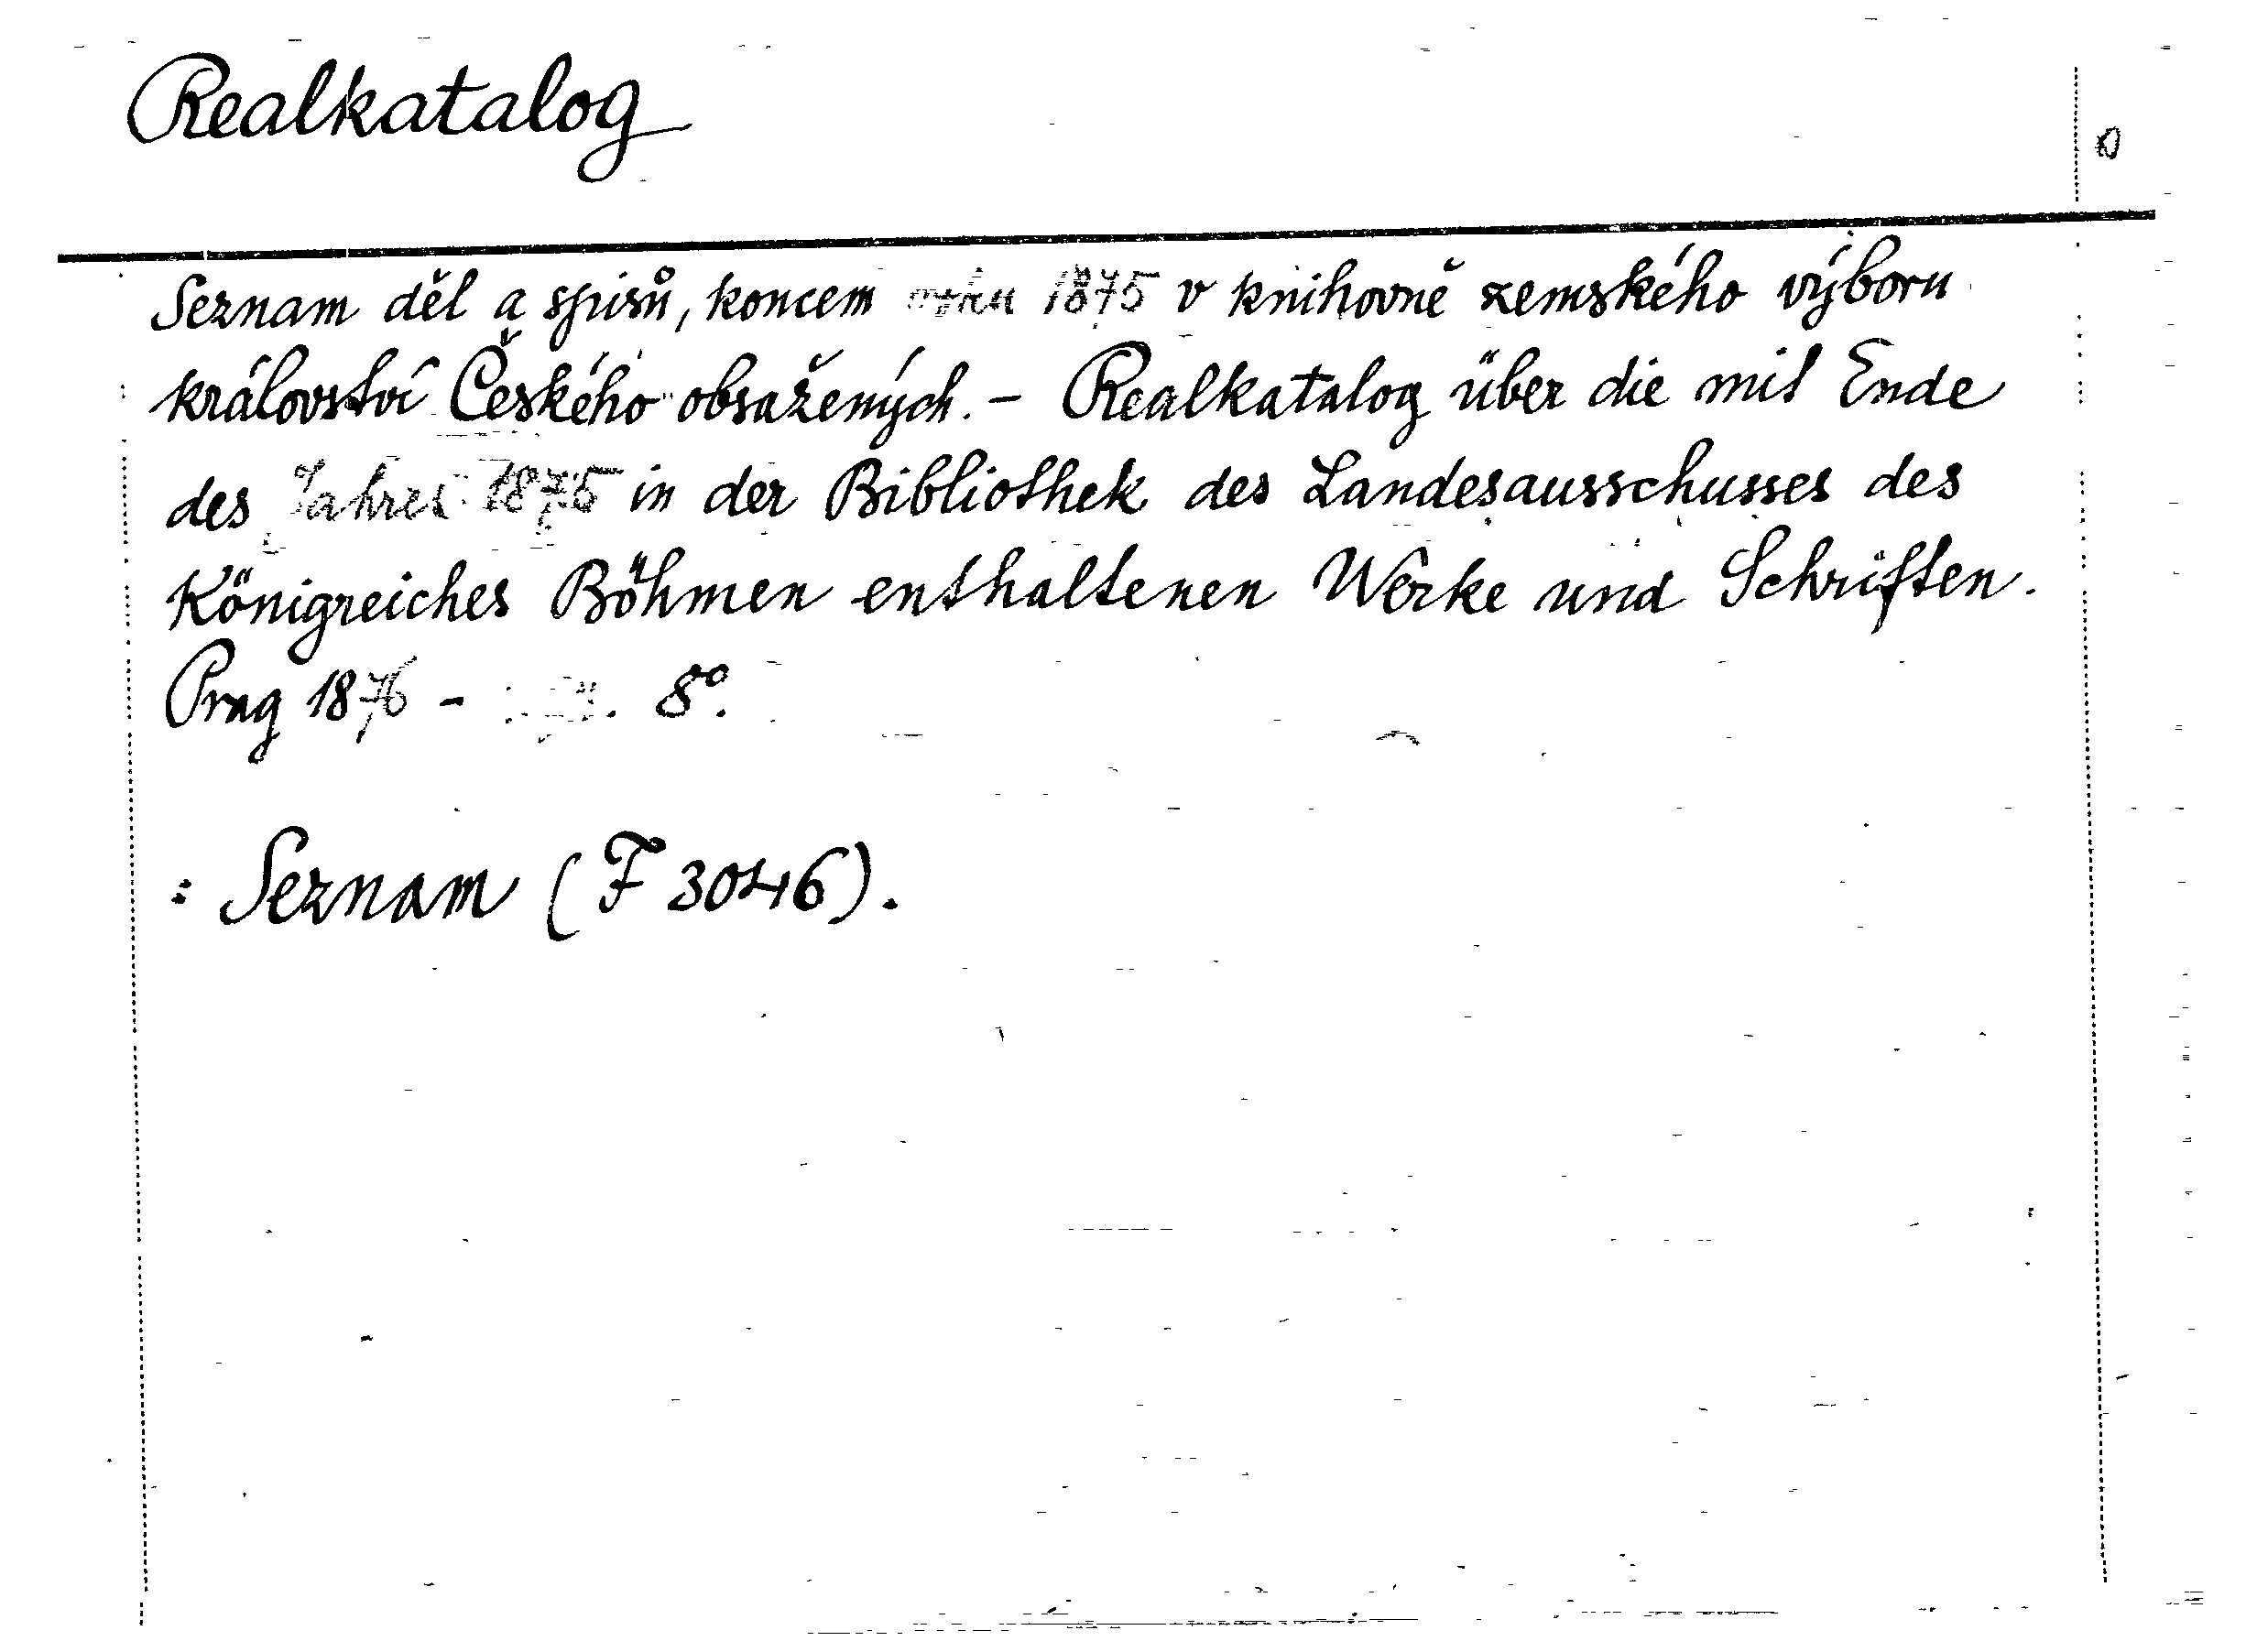 Realkatalog
Seznam děl a spisů, koncem roku 1875 v knihovně zemského výboru
království Českého obsažených. – Realkatalog über die mit Ende
des Jahres 1875 in der Bibliothek des Landesausschusses des
Königreiches Böhmen enthaltenen Werke und Schriften.
Prag 1876 – 8°.
: Seznam (F 3046).